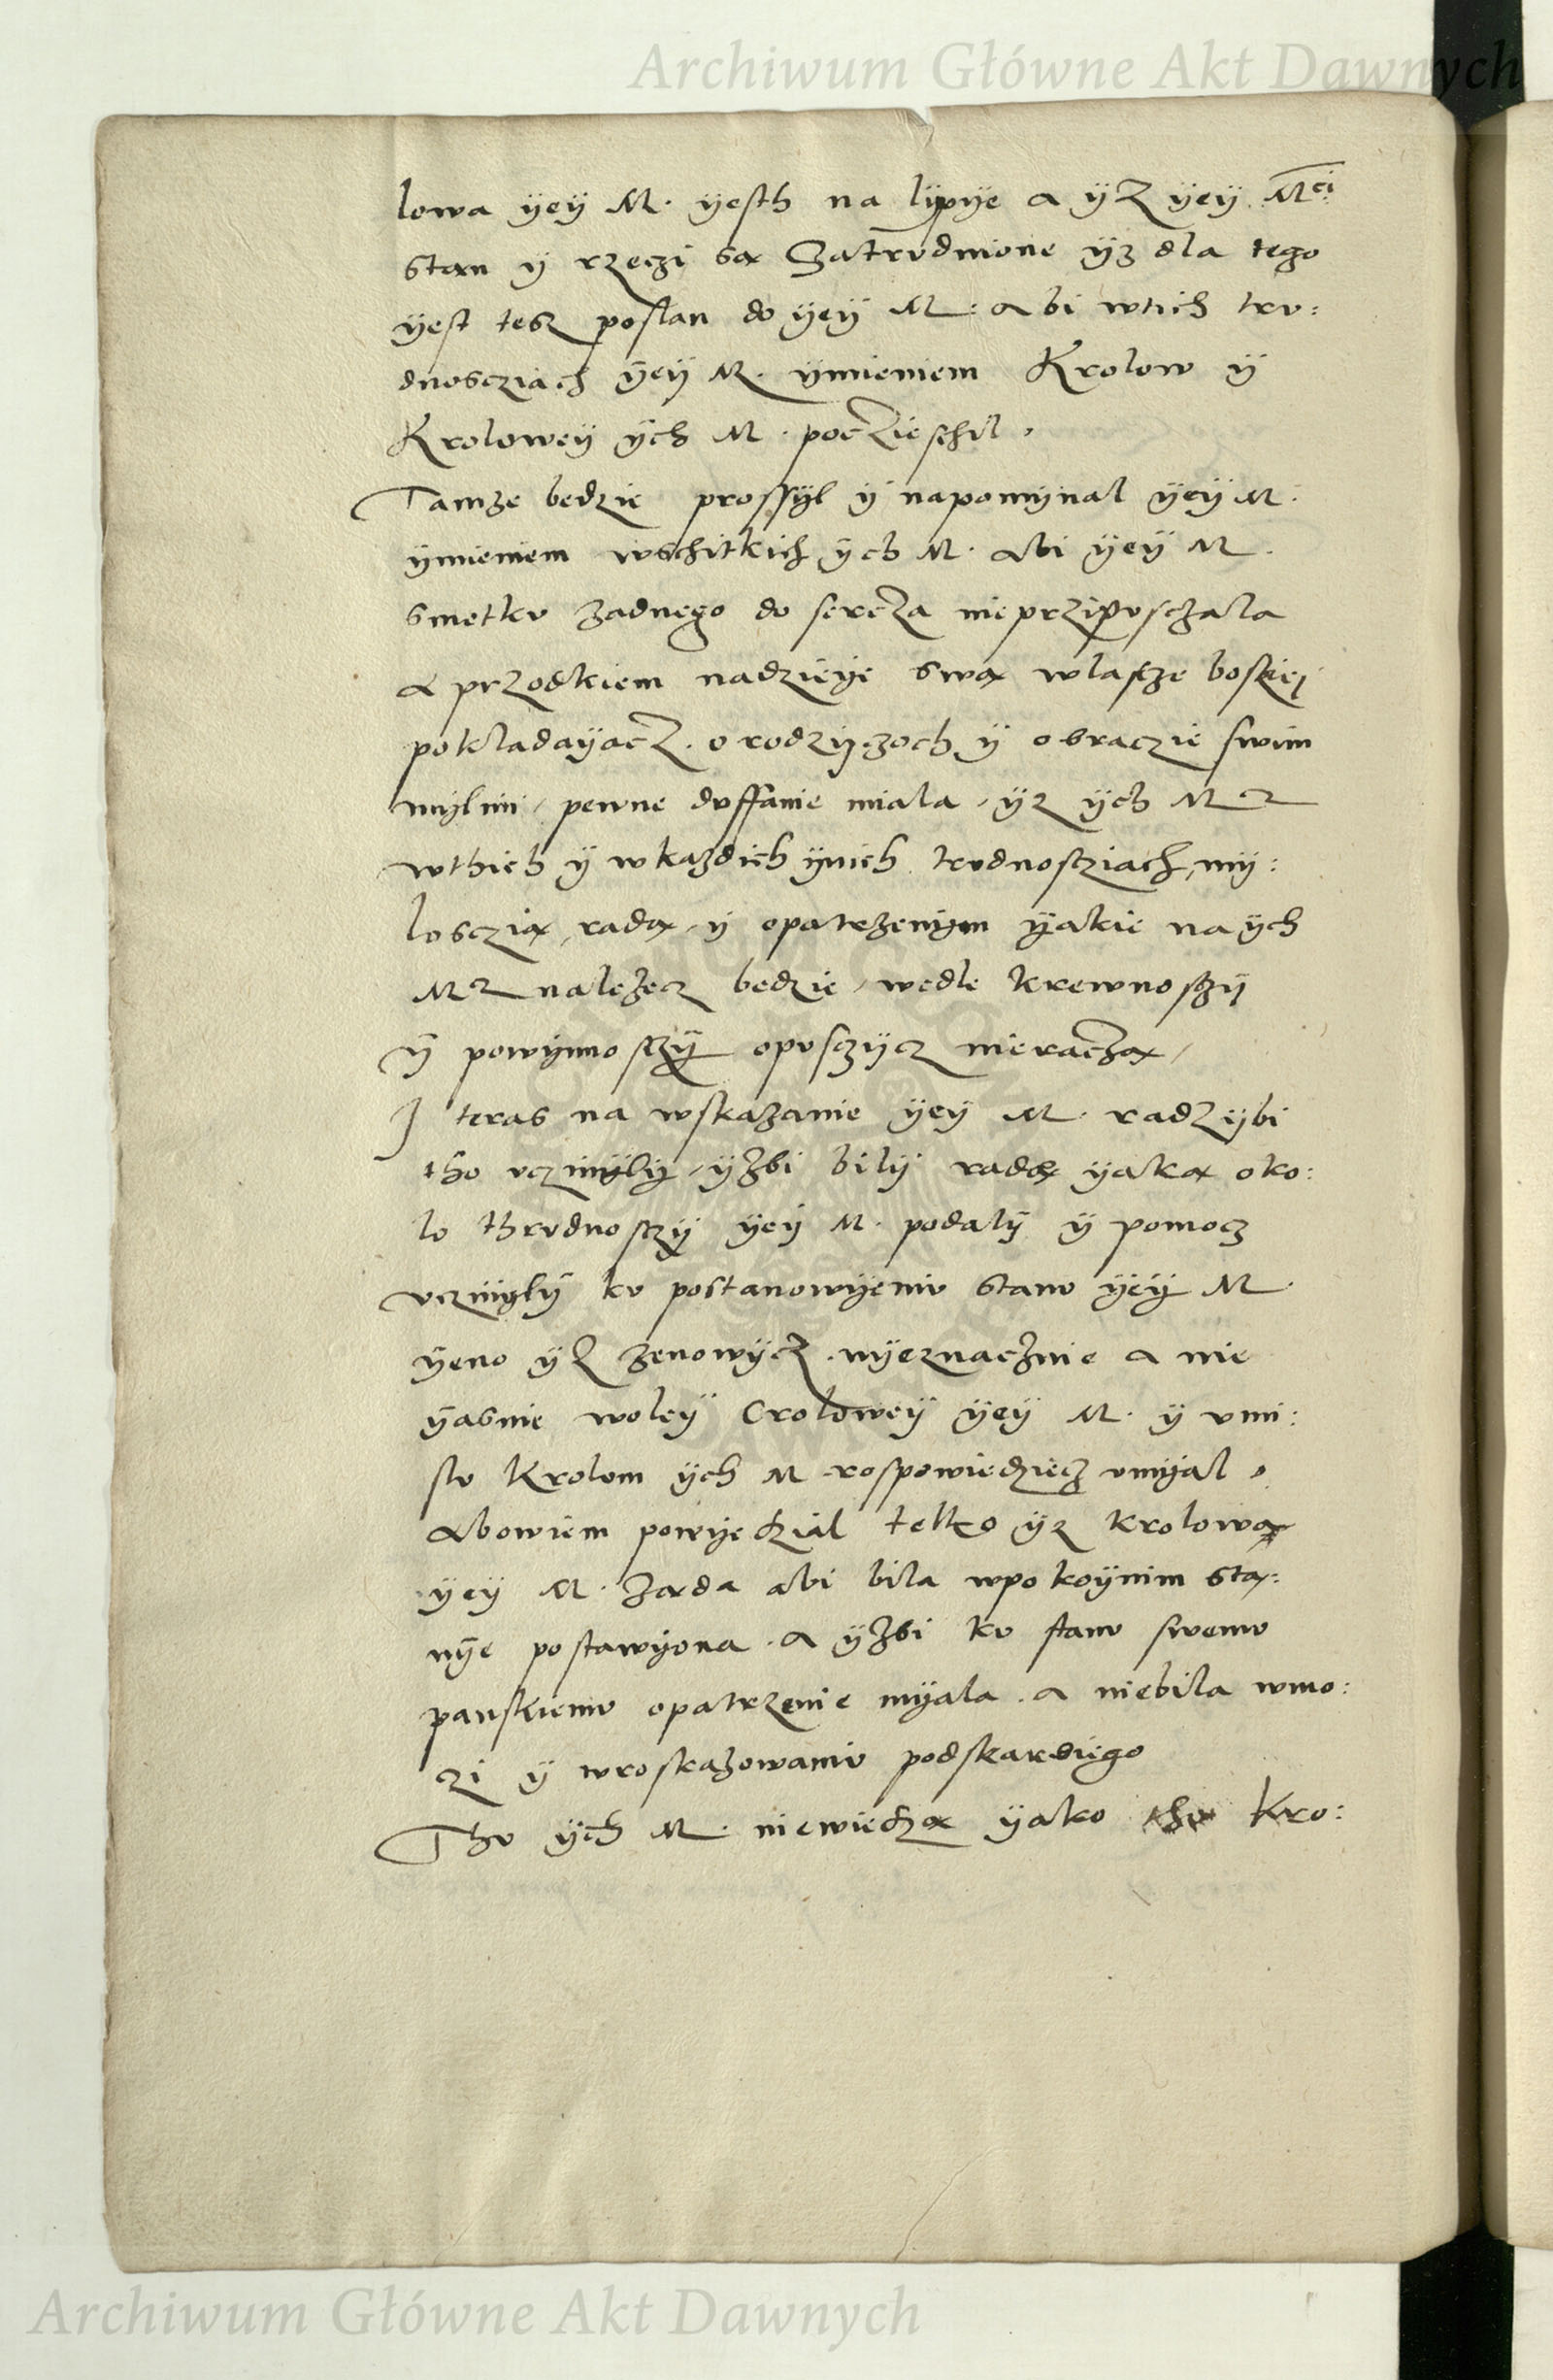 Archiwum Główne Akt Dawnych
lowa yey M. yesth na lypye a yz yey Mci
stan y rzeczi sa zatrvdnione yz dla tego
yest tesz poslan do yey M: abi wtich trv:
dnoscziach yey M. ymieniem Krolow y
Krolowey ych M. poczieschil.
Tamze bedzie prossyl y napomynal yey M.
ymieniem wschitkich ych M. abi yey M.
smetkv zadnego do sercza nieprzipvsczala
a przodkiem nadzieye swa wlascze boskiej
pokladayacz. o rodzyczoch y o braczie swim
mylim, pewne dvffanie miala, yz ych M
wthich y wkazdich ynich trvdnosciach, my:
losczia, rada, y opatrzenym yakie na ych
M nalezecz bedzie, wedle krewnosczy
y powynnosczy opvsczycz nieracza,
J teras na wskazanie yey M. radzybi
tho vczinyly, yzbi bily rada yaka oko:
lo thrvdnosczy yey M. podaly y pomocz
vczinyly kv postanowyeniv stanv yey M.
yeno yz zenowycz. nyeznacznie a nie
yasnie woley Crolowey yey M. y vmi:
slv Krolom ych M rospowiedziecz vmyal.
Abowiem powyedzial telko yz krolowa
yey M. zada abi bila wpokoynim sta:
nye postawyona. a yzbi kv stanv swemv
panskiemv opatrzenie myala. a niebila wmo:
zi y wroskazowaniv podskarbiego
Tho ych M. niewiedza yako Kro:
Archiwum Główne Akt Dawnych